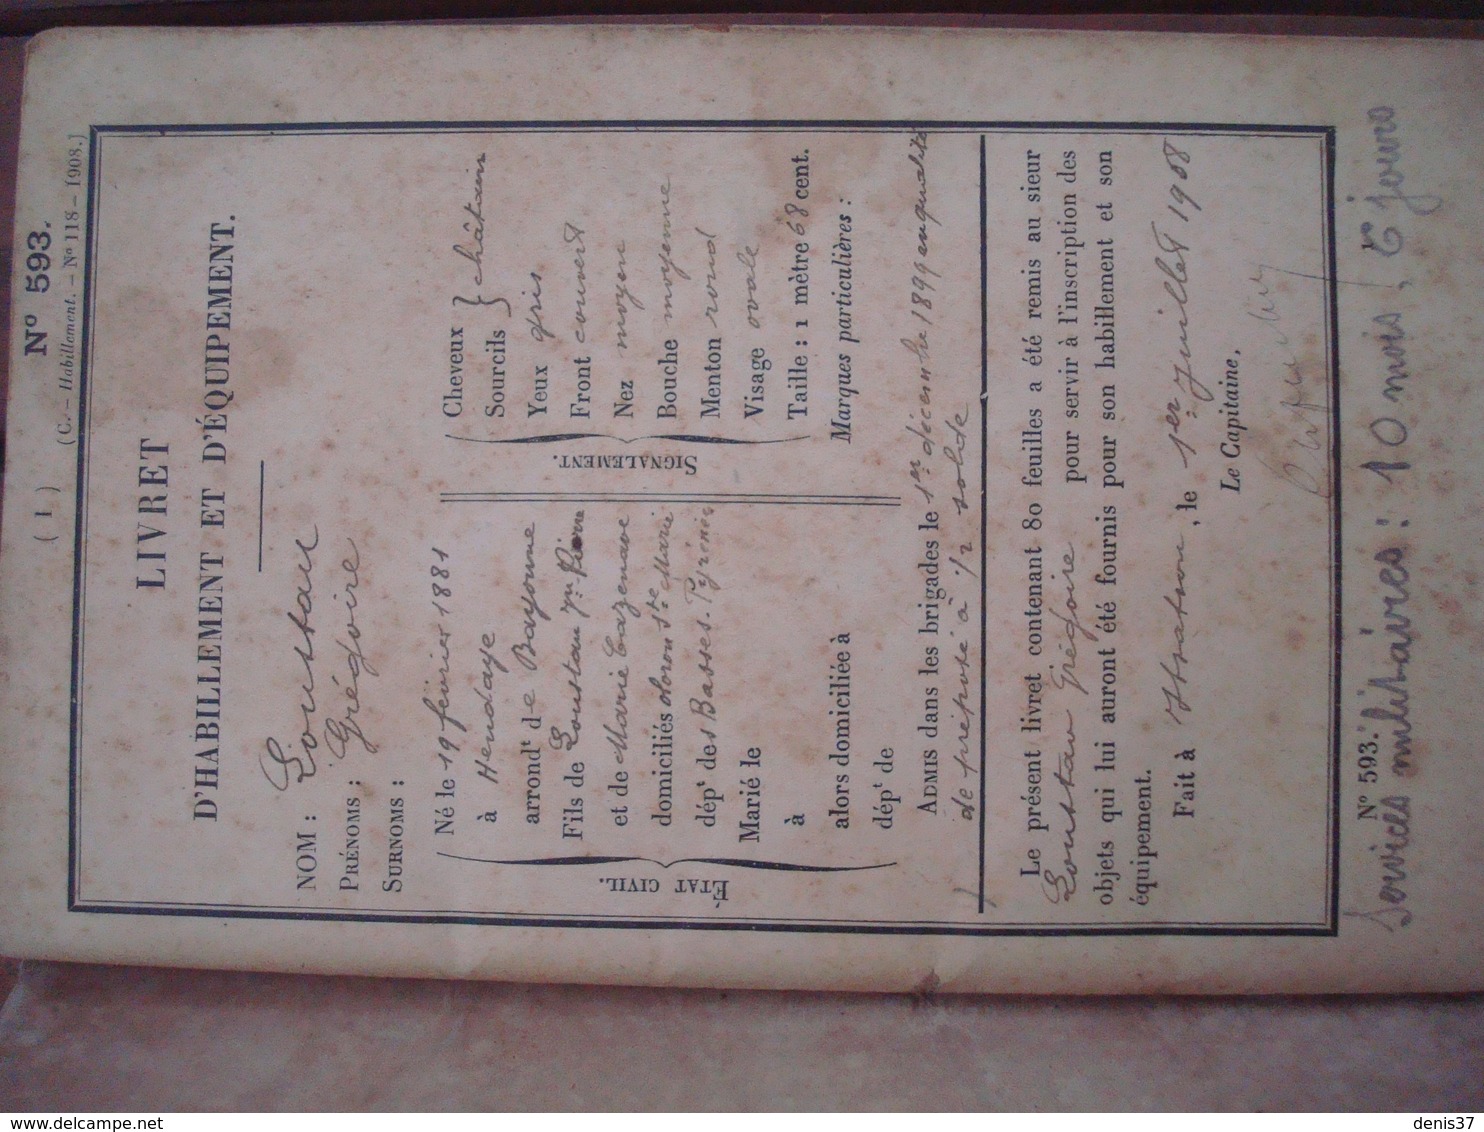 ( 1 )
N° 593.
(C. – Habillement. – N° 118 – 1908.)
LIVRET
D'HABILLEMENT ET D'ÉQUIPEMENT.
NOM : Loustau
PRÉNOMS : Grégoire
SURNOMS :
ÉTAT CIVIL.
Né le 19 février 1881
à Hendaye
arrondt de Bayonne
Fils de Loustau Jn Pierre
et de Marie Cazenave
domiciliés Oloron Ste Marie
dépt des Basses-Pyrénées
Marié le
à
alors domiciliée à
dépt de
SIGNALEMENT.
Cheveux } châtain
Sourcils
Yeux gris
Front couvert
Nez moyen
Bouche moyenne
Menton rond
Visage ovale
Taille : 1 mètre 68 cent.
Marques particulières :
ADMIS dans les brigades le 1er décembre 1899 en qualité
de préposé à 1/2 solde
Le présent livret contenant 80 feuilles a été remis au sieur
Loustau Grégoire pour servir à l'inscription des
objets qui lui auront été fournis pour son habillement et son
équipement.
Fait à , le 1er juillet 1908
Le Capitaine,
N° 593. 1°
Services militaires : 10 mois, 6 jours
denis37